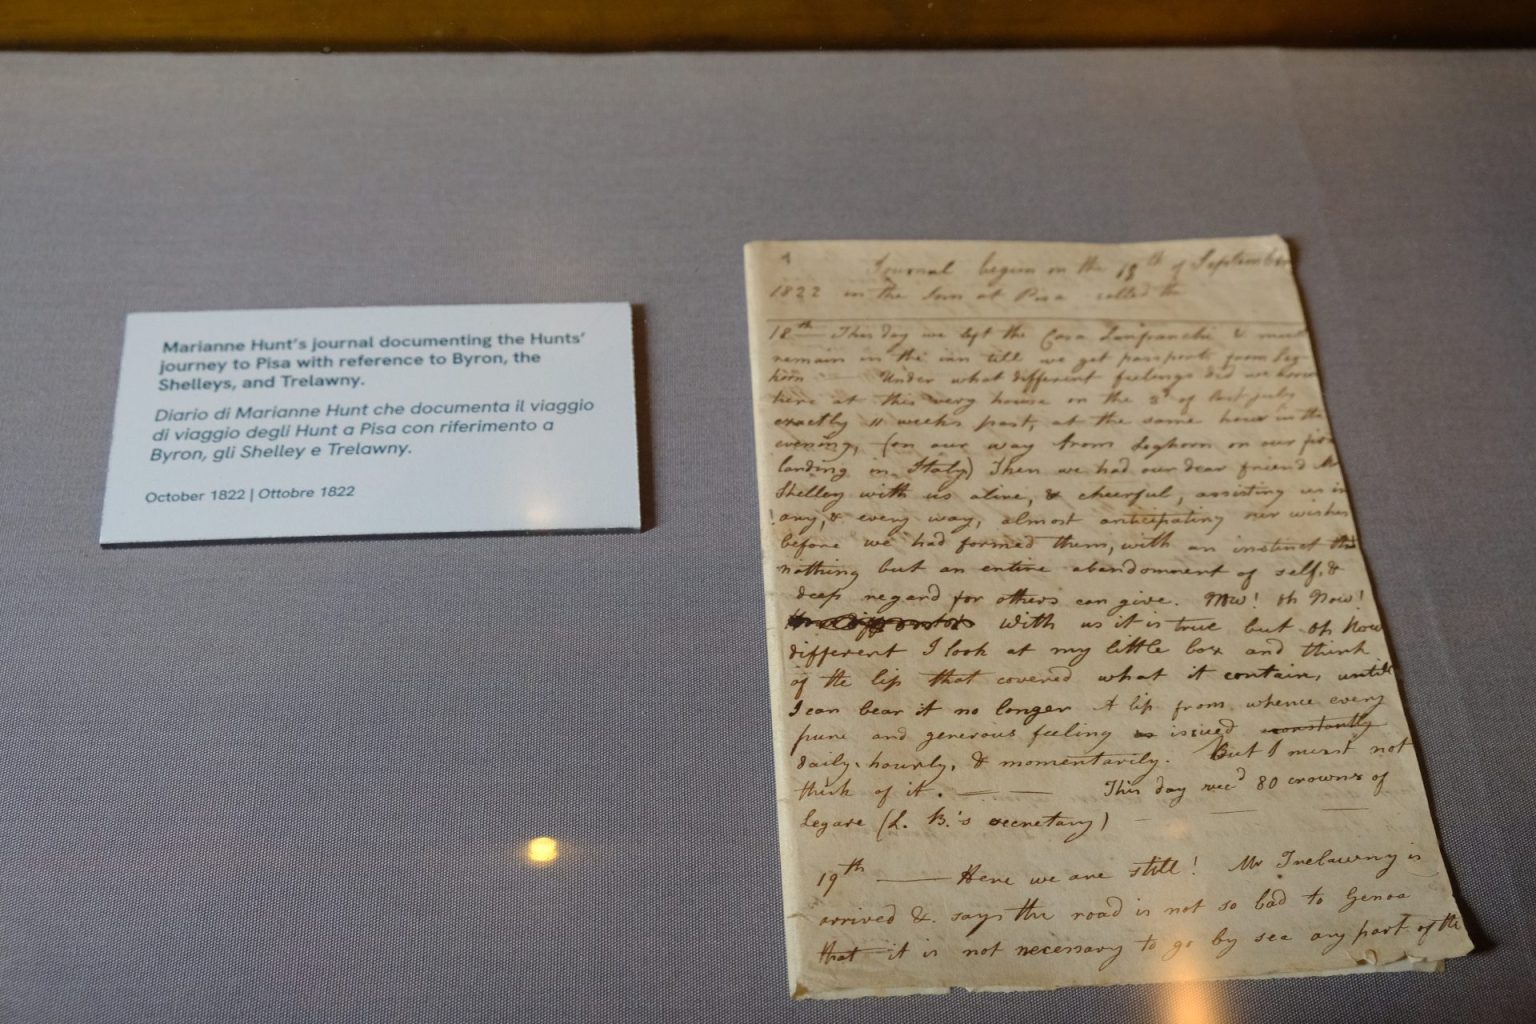 Marianne Hunt's journal documenting the Hunts'
journey to Pisa with reference to Byron, the
Shelleys, and Trelawny.
Diario di Marianne Hunt che documenta il viaggio
di viaggio degli Hunt a Pisa con riferimento a
Byron, gli Shelley e Trelawny.
October 1822 | Ottobre 1822
Journal begun on the 18th of September
1822 in the Inn at Pisa called the
18th This day we left the Casa Lanfranchi & must
remain in the inn till we get passports from Leg-
horn Under what different feelings did we
here at this very house on the 3d of last July
exactly 11 weeks past, at the same hour in the
evening, (on our way from Leghorn on our first
landing in Italy) Then we had our dear friend Mr
Shelley with us alive, & cheerful, assisting us in
any, & every way, almost anticipating our wishes
before we had formed them, with an instinct that
nothing but an entire abandonment of self, &
deep regard for others can give. Now! Oh Now!
with us it is true but oh how
different I look at my little box and think
of the lip that covered what it contain, until
I can bear it no longer A lip from whence every
pure and generous feeling issued constantly
daily, hourly, & momentarily. But I must not
think of it. This day recd 80 crowns of
Legare (L. B.'s secretary)
19th Here we are still! Mr Trelawny is
arrived & says the road is not so bad to Genoa
that it is not necessary to go by sea any part of the